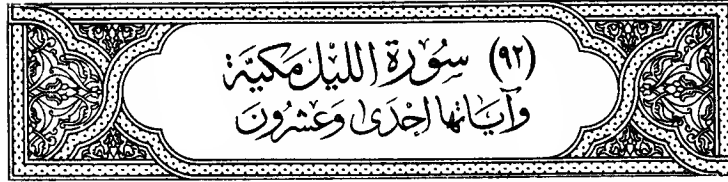 (٩٢) سُوْرَةِ اللَّيْلِ مَكِّيَّة
وَآيَاتُهَا إِحْدَىٰ وَعِشْرُونَ